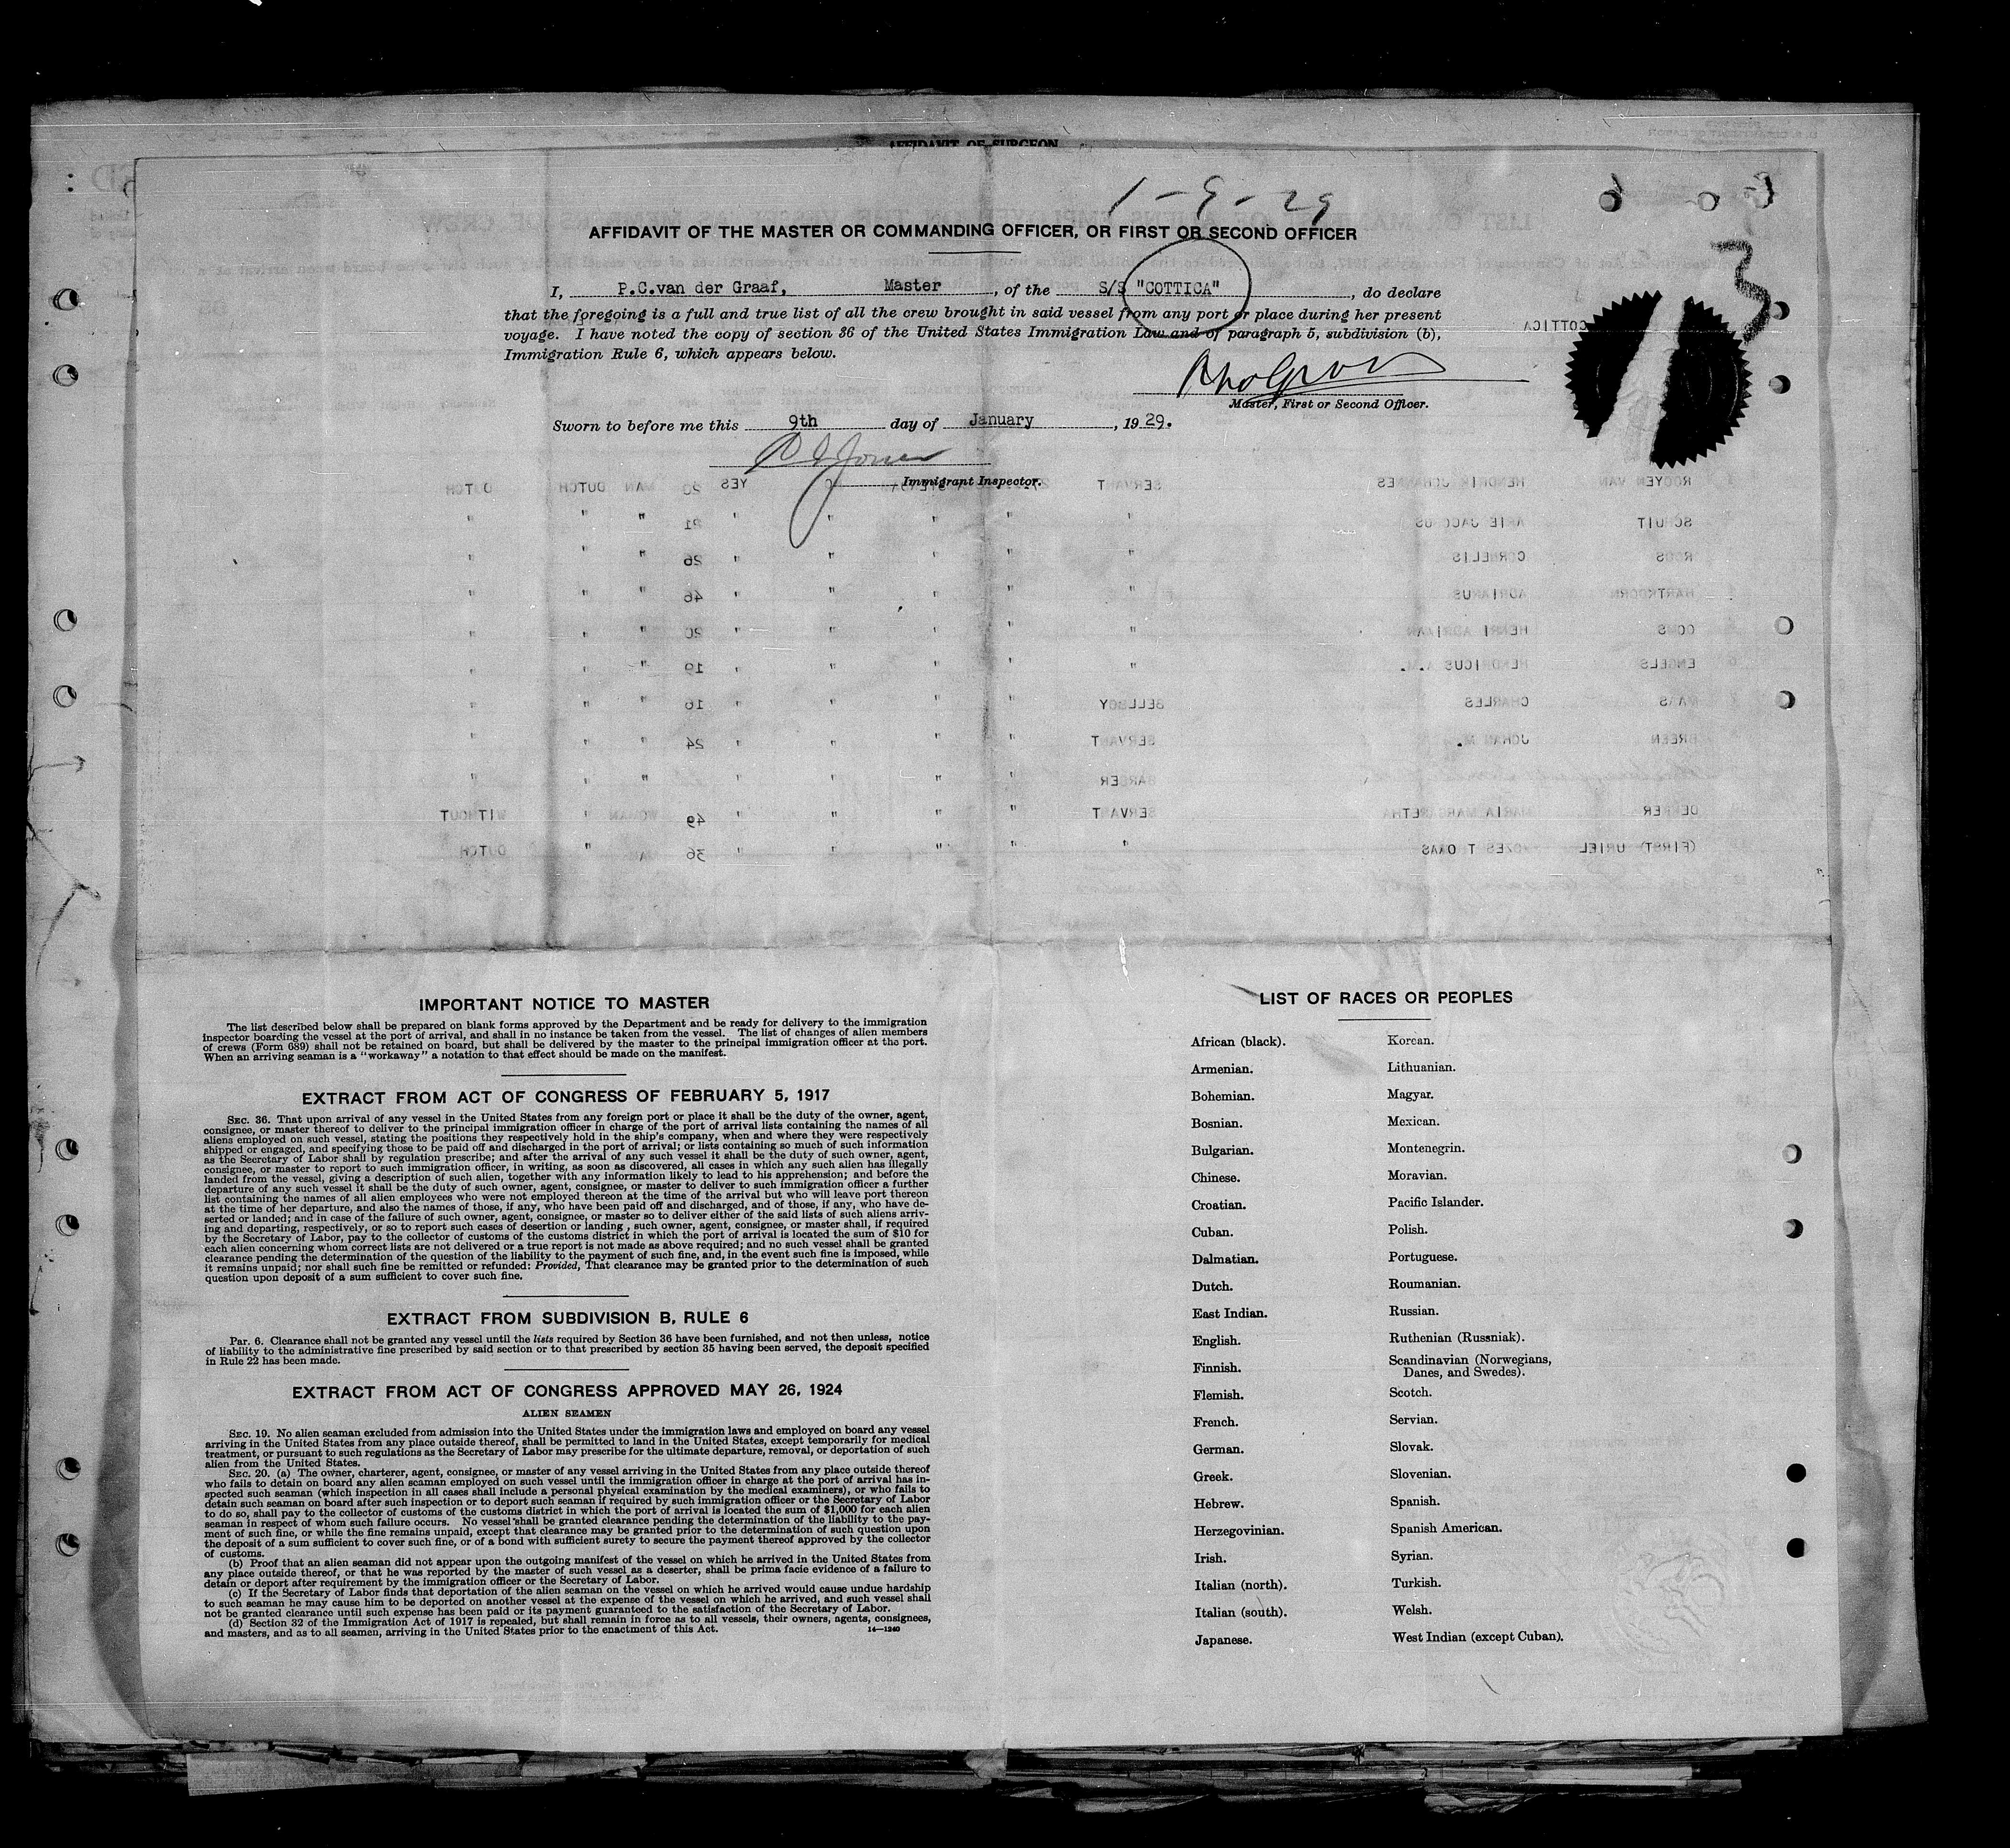 AFFIDAVIT OF SURGEON
1-9-29
AFFIDAVIT OF THE MASTER OR COMMANDING OFFICER, OR FIRST OR SECOND OFFICER
3
I, P.C.van der Graaf, Master, of the S/S "COTTICA", do declare
that the foregoing is a full and true list of all the crew brought in said vessel from any port or place during her present
voyage. I have noted the copy of section 36 of the United States Immigration Law and of paragraph 5, subdivision (b),
Immigration Rule 6, which appears below.
Master, First or Second Officer.
Sworn to before me this 9th day of January, 1929.
Immigrant Inspector.
ROOYEN VAN HENDRIK JOHANNES SERVANT YES 20 MAN DUTCH DUTCH
SCHUIT ARIE JACOBUS " " " " 21 " " "
ROOS CORNELIS " " " " " 26 " " "
HARTKOORN ADRIANUS " " " " " 46 " " "
OOMS HENRI ADRIAAN " " " " " 20 " " "
ENGELS HENDRICUS " " " " " 19 " " "
MAAS CHARLES BELLBOY " " " " 16 " " "
BREEN JOHAN M. SERVANT " " " " 24 " " "
BARBER " " " " " " "
DEKKER MARIA MARGRETHA SERVANT " " " " 49 WOMAN " WITHOUT
(FIRST) URIEL " " " " " 36 MAN " DUTCH
IMPORTANT NOTICE TO MASTER
The list described below shall be prepared on blank forms approved by the Department and be ready for delivery to the immigration
inspector boarding the vessel at the port of arrival, and shall in no instance be taken from the vessel. The list of changes of alien members
of crews (Form 689) shall not be retained on board, but shall be delivered by the master to the principal immigration officer at the port.
When an arriving seaman is a "workaway" a notation to that effect should be made on the manifest.
EXTRACT FROM ACT OF CONGRESS OF FEBRUARY 5, 1917
SEC. 36. That upon arrival of any vessel in the United States from any foreign port or place it shall be the duty of the owner, agent,
consignee, or master thereof to deliver to the principal immigration officer in charge of the port of arrival lists containing the names of all
aliens employed on such vessel, stating the positions they respectively hold in the ship's company, when and where they were respectively
shipped or engaged, and specifying those to be paid off and discharged in the port of arrival; or lists containing so much of such information
as the Secretary of Labor shall by regulation prescribe; and after the arrival of any such vessel it shall be the duty of such owner, agent,
consignee, or master to report to such immigration officer, in writing, as soon as discovered, all cases in which any such alien has illegally
landed from the vessel, giving a description of such alien, together with any information likely to lead to his apprehension; and before the
departure of any such vessel it shall be the duty of such owner, agent, consignee, or master to deliver to such immigration officer a further
list containing the names of all alien employees who were not employed thereon at the time of the arrival but who will leave port thereon
at the time of her departure, and also the names of those, if any, who have been paid off and discharged, and of those, if any, who have de-
serted or landed; and in case of the failure of such owner, agent, consignee, or master so to deliver either of the said lists of such aliens arriv-
ing and departing, respectively, or so to report such cases of desertion or landing, such owner, agent, consignee, or master shall, if required
by the Secretary of Labor, pay to the collector of customs of the customs district in which the port of arrival is located the sum of $10 for
each alien concerning whom correct lists are not delivered or a true report is not made as above required; and no such vessel shall be granted
clearance pending the determination of the question of the liability to the payment of such fine, and, in the event such fine is imposed, while
it remains unpaid; nor shall such fine be remitted or refunded: Provided, That clearance may be granted prior to the determination of such
question upon deposit of a sum sufficient to cover such fine.
EXTRACT FROM SUBDIVISION B, RULE 6
Par. 6. Clearance shall not be granted any vessel until the lists required by Section 36 have been furnished, and not then unless, notice
of liability to the administrative fine prescribed by said section or to that prescribed by section 35 having been served, the deposit specified
in Rule 22 has been made.
EXTRACT FROM ACT OF CONGRESS APPROVED MAY 26, 1924
ALIEN SEAMEN
SEC. 19. No alien seaman excluded from admission into the United States under the immigration laws and employed on board any vessel
arriving in the United States from any place outside thereof, shall be permitted to land in the United States, except temporarily for medical
treatment, or pursuant to such regulations as the Secretary of Labor may prescribe for the ultimate departure, removal, or deportation of such
alien from the United States.
SEC. 20. (a) The owner, charterer, agent, consignee, or master of any vessel arriving in the United States from any place outside thereof
who fails to detain on board any alien seaman employed on such vessel until the immigration officer in charge at the port of arrival has in-
spected such seaman (which inspection in all cases shall include a personal physical examination by the medical examiners), or who fails to
detain such seaman on board after such inspection or to deport such seaman if required by such immigration officer or the Secretary of Labor
to do so, shall pay to the collector of customs of the customs district in which the port of arrival is located the sum of $1,000 for each alien
seaman in respect of whom such failure occurs. No vessel shall be granted clearance pending the determination of the liability to the pay-
ment of such fine, or while the fine remains unpaid, except that clearance may be granted prior to the determination of such question upon
the deposit of a sum sufficient to cover such fine, or of a bond with sufficient surety to secure the payment thereof approved by the collector
of customs.
(b) Proof that an alien seaman did not appear upon the outgoing manifest of the vessel on which he arrived in the United States from
any place outside thereof, or that he was reported by the master of such vessel as a deserter, shall be prima facie evidence of a failure to
detain or deport after requirement by the immigration officer or the Secretary of Labor.
(c) If the Secretary of Labor finds that deportation of the alien seaman on the vessel on which he arrived would cause undue hardship
to such seaman he may cause him to be deported on another vessel at the expense of the vessel on which he arrived, and such vessel shall
not be granted clearance until such expense has been paid or its payment guaranteed to the satisfaction of the Secretary of Labor.
(d) Section 32 of the Immigration Act of 1917 is repealed, but shall remain in force as to all vessels, their owners, agents, consignees,
and masters, and as to all seamen, arriving in the United States prior to the enactment of this Act.
14—1240
LIST OF RACES OR PEOPLES
African (black).
Armenian.
Bohemian.
Bosnian.
Bulgarian.
Chinese.
Croatian.
Cuban.
Dalmatian.
Dutch.
East Indian.
English.
Finnish.
Flemish.
French.
German.
Greek.
Hebrew.
Herzegovinian.
Irish.
Italian (north).
Italian (south).
Japanese.
Korean.
Lithuanian.
Magyar.
Mexican.
Montenegrin.
Moravian.
Pacific Islander.
Polish.
Portuguese.
Roumanian.
Russian.
Ruthenian (Russniak).
Scandinavian (Norwegians,
Danes, and Swedes).
Scotch.
Servian.
Slovak.
Slovenian.
Spanish.
Spanish American.
Syrian.
Turkish.
Welsh.
West Indian (except Cuban).